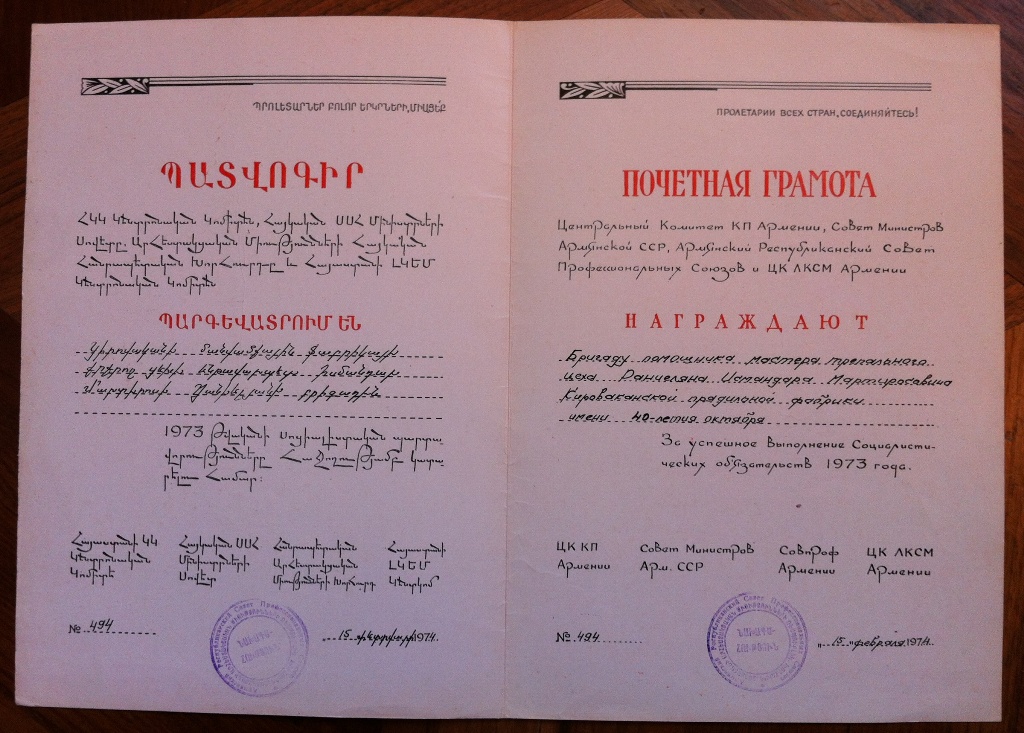 ՊՐՈԼԵՏԱՐՆԵՐ ԲՈԼՈՐ ԵՐԿՐՆԵՐԻ, ՄԻԱՑԵ՛Ք
ՊԱՏՎՈԳԻՐ
ՀԿԿ Կենտրոնական Կոմիտեն, Հայկական ՍՍՀ Մինիստրների
Սովետը, Արհեստակցական Միությունների Հայկական
Հանրապետական Խորհուրդը և Հայաստանի ԼԿԵՄ
Կենտրոնական Կոմիտեն
ՊԱՐԳԵՎԱՏՐՈՒՄ ԵՆ
Կիրովականի մանվածքային ֆաբրիկայի
1973 Թվականի Սոցիալիստական պարտա-
վորությունները Հաջողությամբ կատա-
րելու Համար:
Հայաստանի ԿԿ
Կենտրոնական
Կոմիտե
Հայկական ՍՍՀ
Մինիստրների
Սովետ
Հանրապետական
Արհեստակցական
Միությունների Խորհուրդ
Հայաստանի
ԼԿԵՄ
Կենտկոմ
№ 494
„15 փետրվարի 1974.
ПРОЛЕТАРИИ ВСЕХ СТРАН, СОЕДИНЯЙТЕСЬ!
ПОЧЕТНАЯ ГРАМОТА
Центральный Комитет КП Армении, Совет Министров
Армянской ССР, Армянский Республиканский Совет
Профессиональных Союзов и ЦК ЛКСМ Армении
НАГРАЖДАЮТ
Бригаду помощника мастера трепального
цеха Ранчеляна Исмандара Мартиросовича
Кироваканской прядильной фабрики
имени 40-летия октября
За успешное выполнение Социалисти-
ческих обязательств 1973 года.
ЦК КП
Армении
Совет Министров
Арм. ССР
Совпроф
Армении
ЦК ЛКСМ
Армении
№ 494
„15„ февраля 1974.